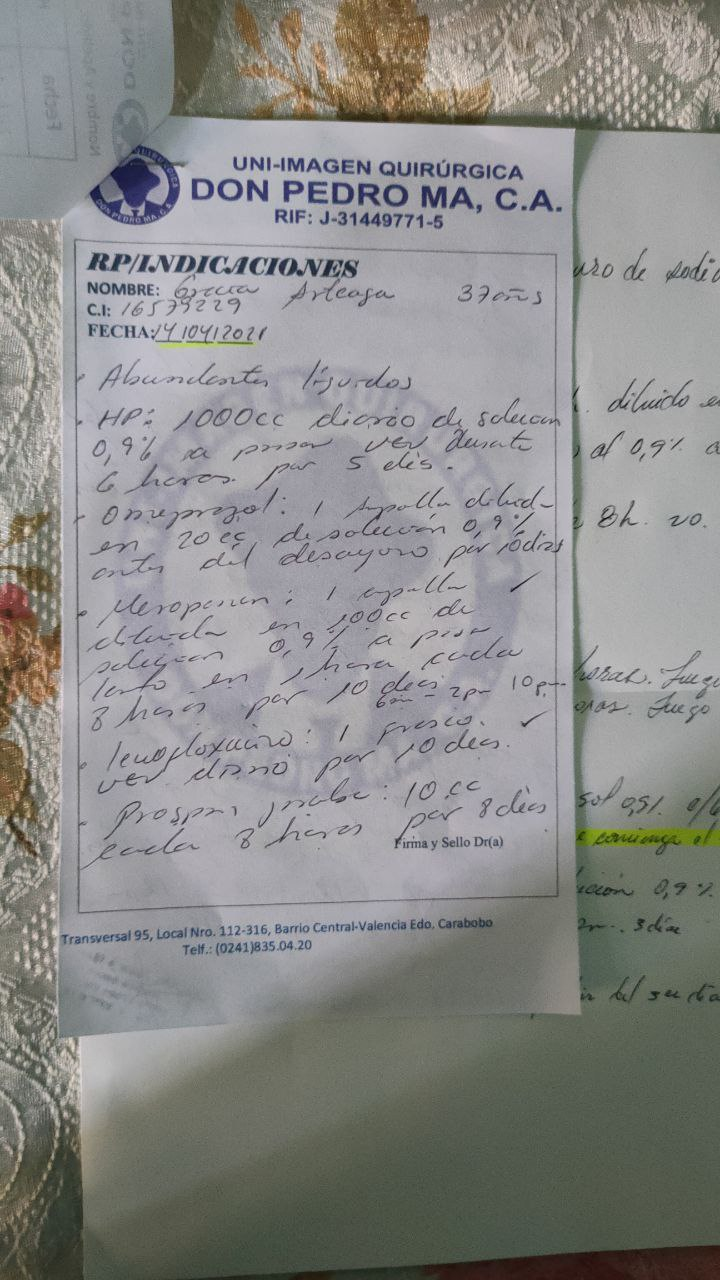 Fecha
Nombre y Ape
DON P
UNI-IMAGEN QUIRÚRGICA
DON PEDRO MA, C.A.
RIF: J-31449771-5
DON PEDRO MA, C.A.
RP/INDICACIONES
NOMBRE: Arteaga 37 años
C.I: 16579229
FECHA: 14/04/2021
• Abundantes líquidos
• HP: 1000cc diario de solucion
0,9% a pasar VEV durante
6 horas por 5 dis.
• Omeprazol: 1 ampolla diluid-
en 20cc de solución 0,9%
antes del desayuno por 10 días
• Meropenen: 1 ampolla ✓
diluida en 100cc de
solucion 0,9% a pasar
lento en 1 hora cada
8 horas por 10 dias
6am - 2pm 10pm
• levofloxacino: 1 frasco. ✓
VEV diario por 10 dias.
• Prospan jarabe: 10cc
cada 8 horas por 8 dias
Firma y Sello Dr(a)
Transversal 95, Local Nro. 112-316, Barrio Central-Valencia Edo. Carabobo
Telf.: (0241)835.04.20
uro de sodio
diluido e
al 0,9% a
8h. VO.
horas. Luego
oras. Luego
sol 0,9%
comienza el
ución 0,9%
3 día